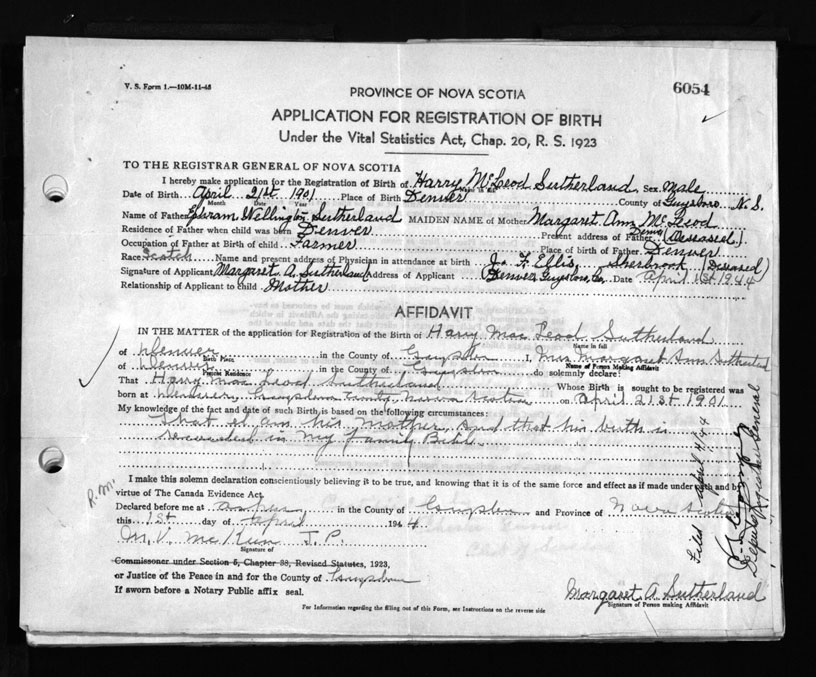 V. S. Form 1.—10M-11-43
PROVINCE OF NOVA SCOTIA
6054
APPLICATION FOR REGISTRATION OF BIRTH
Under the Vital Statistics Act, Chap. 20, R. S. 1923
TO THE REGISTRAR GENERAL OF NOVA SCOTIA
I hereby make application for the Registration of Birth of Harry McLeod Sutherland Sex male
Date of Birth April 21st 1901 Place of Birth Denver County of Guysboro N. S.
Month Date Year
Name of Father Wellington Sutherland MAIDEN NAME of Mother Margaret Ann McLeod
Residence of Father when child was born Denver Present address of Father (Deseased.)
Occupation of Father at Birth of child Farmer Place of birth of Father Denver
Race Scotch Name and present address of Physician in attendance at birth J. F. Ellis, Sherbrook (Diseased)
Signature of Applicant Margaret A. Sutherland Address of Applicant Denver, Date April 1st 1944
Relationship of Applicant to child Mother
AFFIDAVIT
IN THE MATTER of the application for Registration of the Birth of Harry Mac Leod Sutherland
Name in full
of Denver in the County of Guysboro I, Mrs Margaret Ann Sutherland
Birth Place Name of Person Making Affidavit
of Denver in the County of Guysboro do solemnly declare:
Present Residence
That Harry Mac Leod Sutherland Whose Birth is sought to be registered was
born at Denver, Guysboro County Nova Scotia on April 21st 1901
My knowledge of the fact and date of such Birth is based on the following circumstances:
That I am his Mother, and that his birth is
recorded in my family Bible
I make this solemn declaration conscientiously believing it to be true, and knowing that it is of the same force and effect as if made under oath and by
R.M.
virtue of The Canada Evidence Act.
Declared before me at in the County of Guysboro and Province of Nova Scotia
this 1st day of April 1944
J. P.
Signature of
Commissioner under Section 5, Chapter 38, Revised Statutes, 1923,
or Justice of the Peace in and for the County of Guysboro
If sworn before a Notary Public affix seal.
Margaret A. Sutherland
Signature of Person making Affidavit
For Information regarding the filling out of this Form, see Instructions on the reverse side
Filed April 4/44
Deputy Registrar General